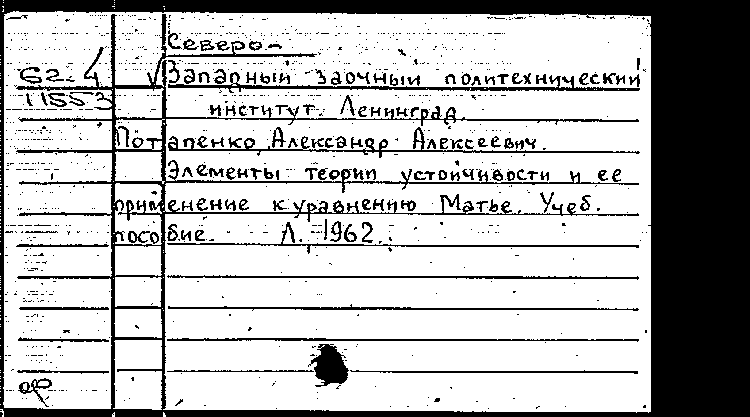 Северо-
62-4 √ Западный заочный политехнический
11553 институт. Ленинград.
Потапенко, Александр Алексеевич.
Элементы теории устойчивости и ее
применение к уравнению Матье. Учеб.
пособие. Л., 1962.